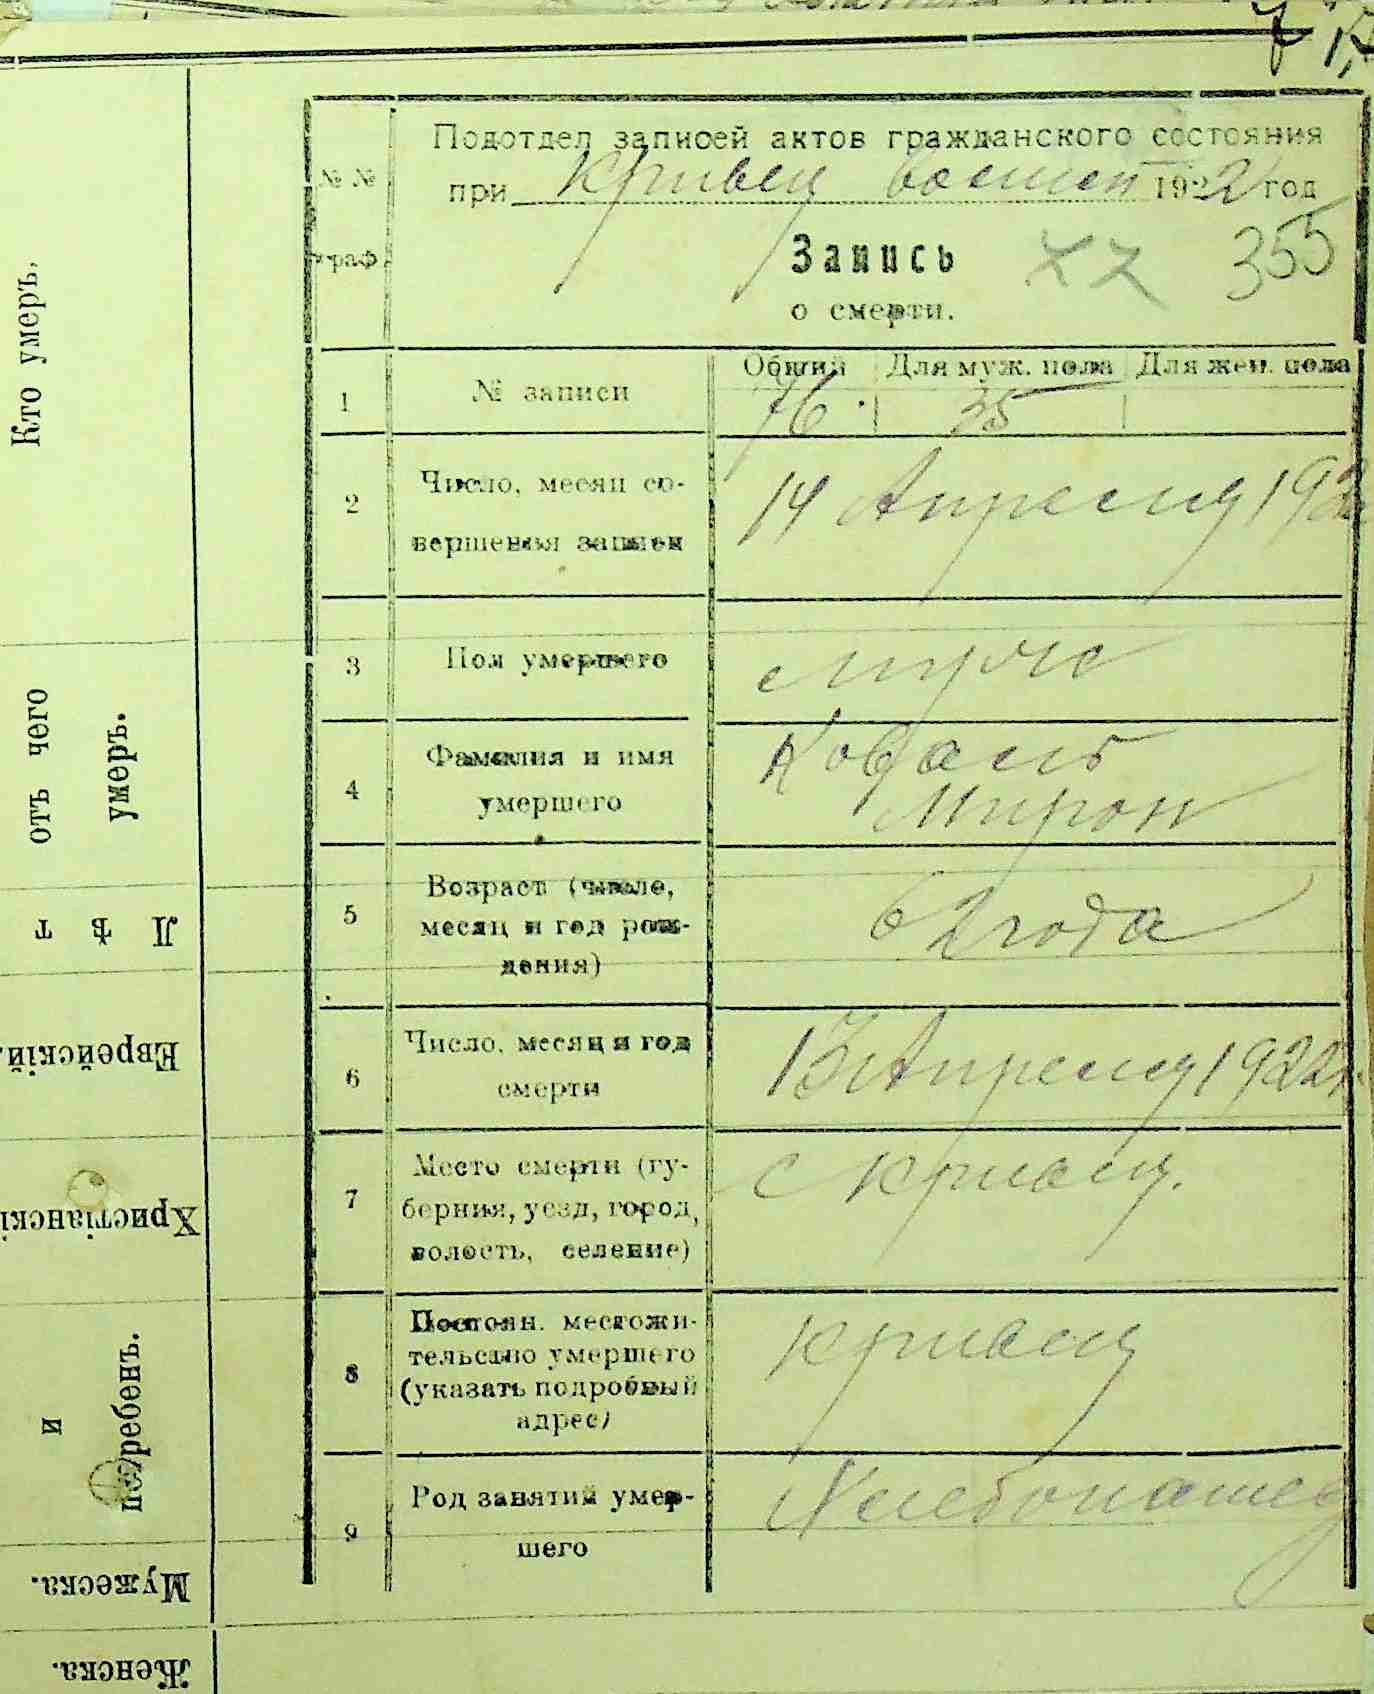 Подотдел записей актов гражданского состояния
при Кривец 1922 год
№ №
граф
Запись
355
о смерти.
Общий Для муж. пола Для жен. пола
1 № записи 76 35
2 Число, месяц со-
вершения записи
14 Апреля 192
3 Пол умершего муж
4 Фамилия и имя
умершего
Коваль
Мирон
5 Возраст (число,
месяц и год рож-
дения)
62 года
6 Число, месяц и год
смерти
13 Апреля 1922 г.
7 Место смерти (гу-
берния, уезд, город,
волость, селение)
с Кривец.
8 Постоян. местожи-
тельство умершего
(указать подробный
адрес)
Кривец
9 Род занятий умер-
шего
Хлебопашец
Кто умеръ,
отъ чего
умеръ.
Лѣт
Еврейскій.
Христіанскі
и
погребенъ.
Мужеска.
Женска.